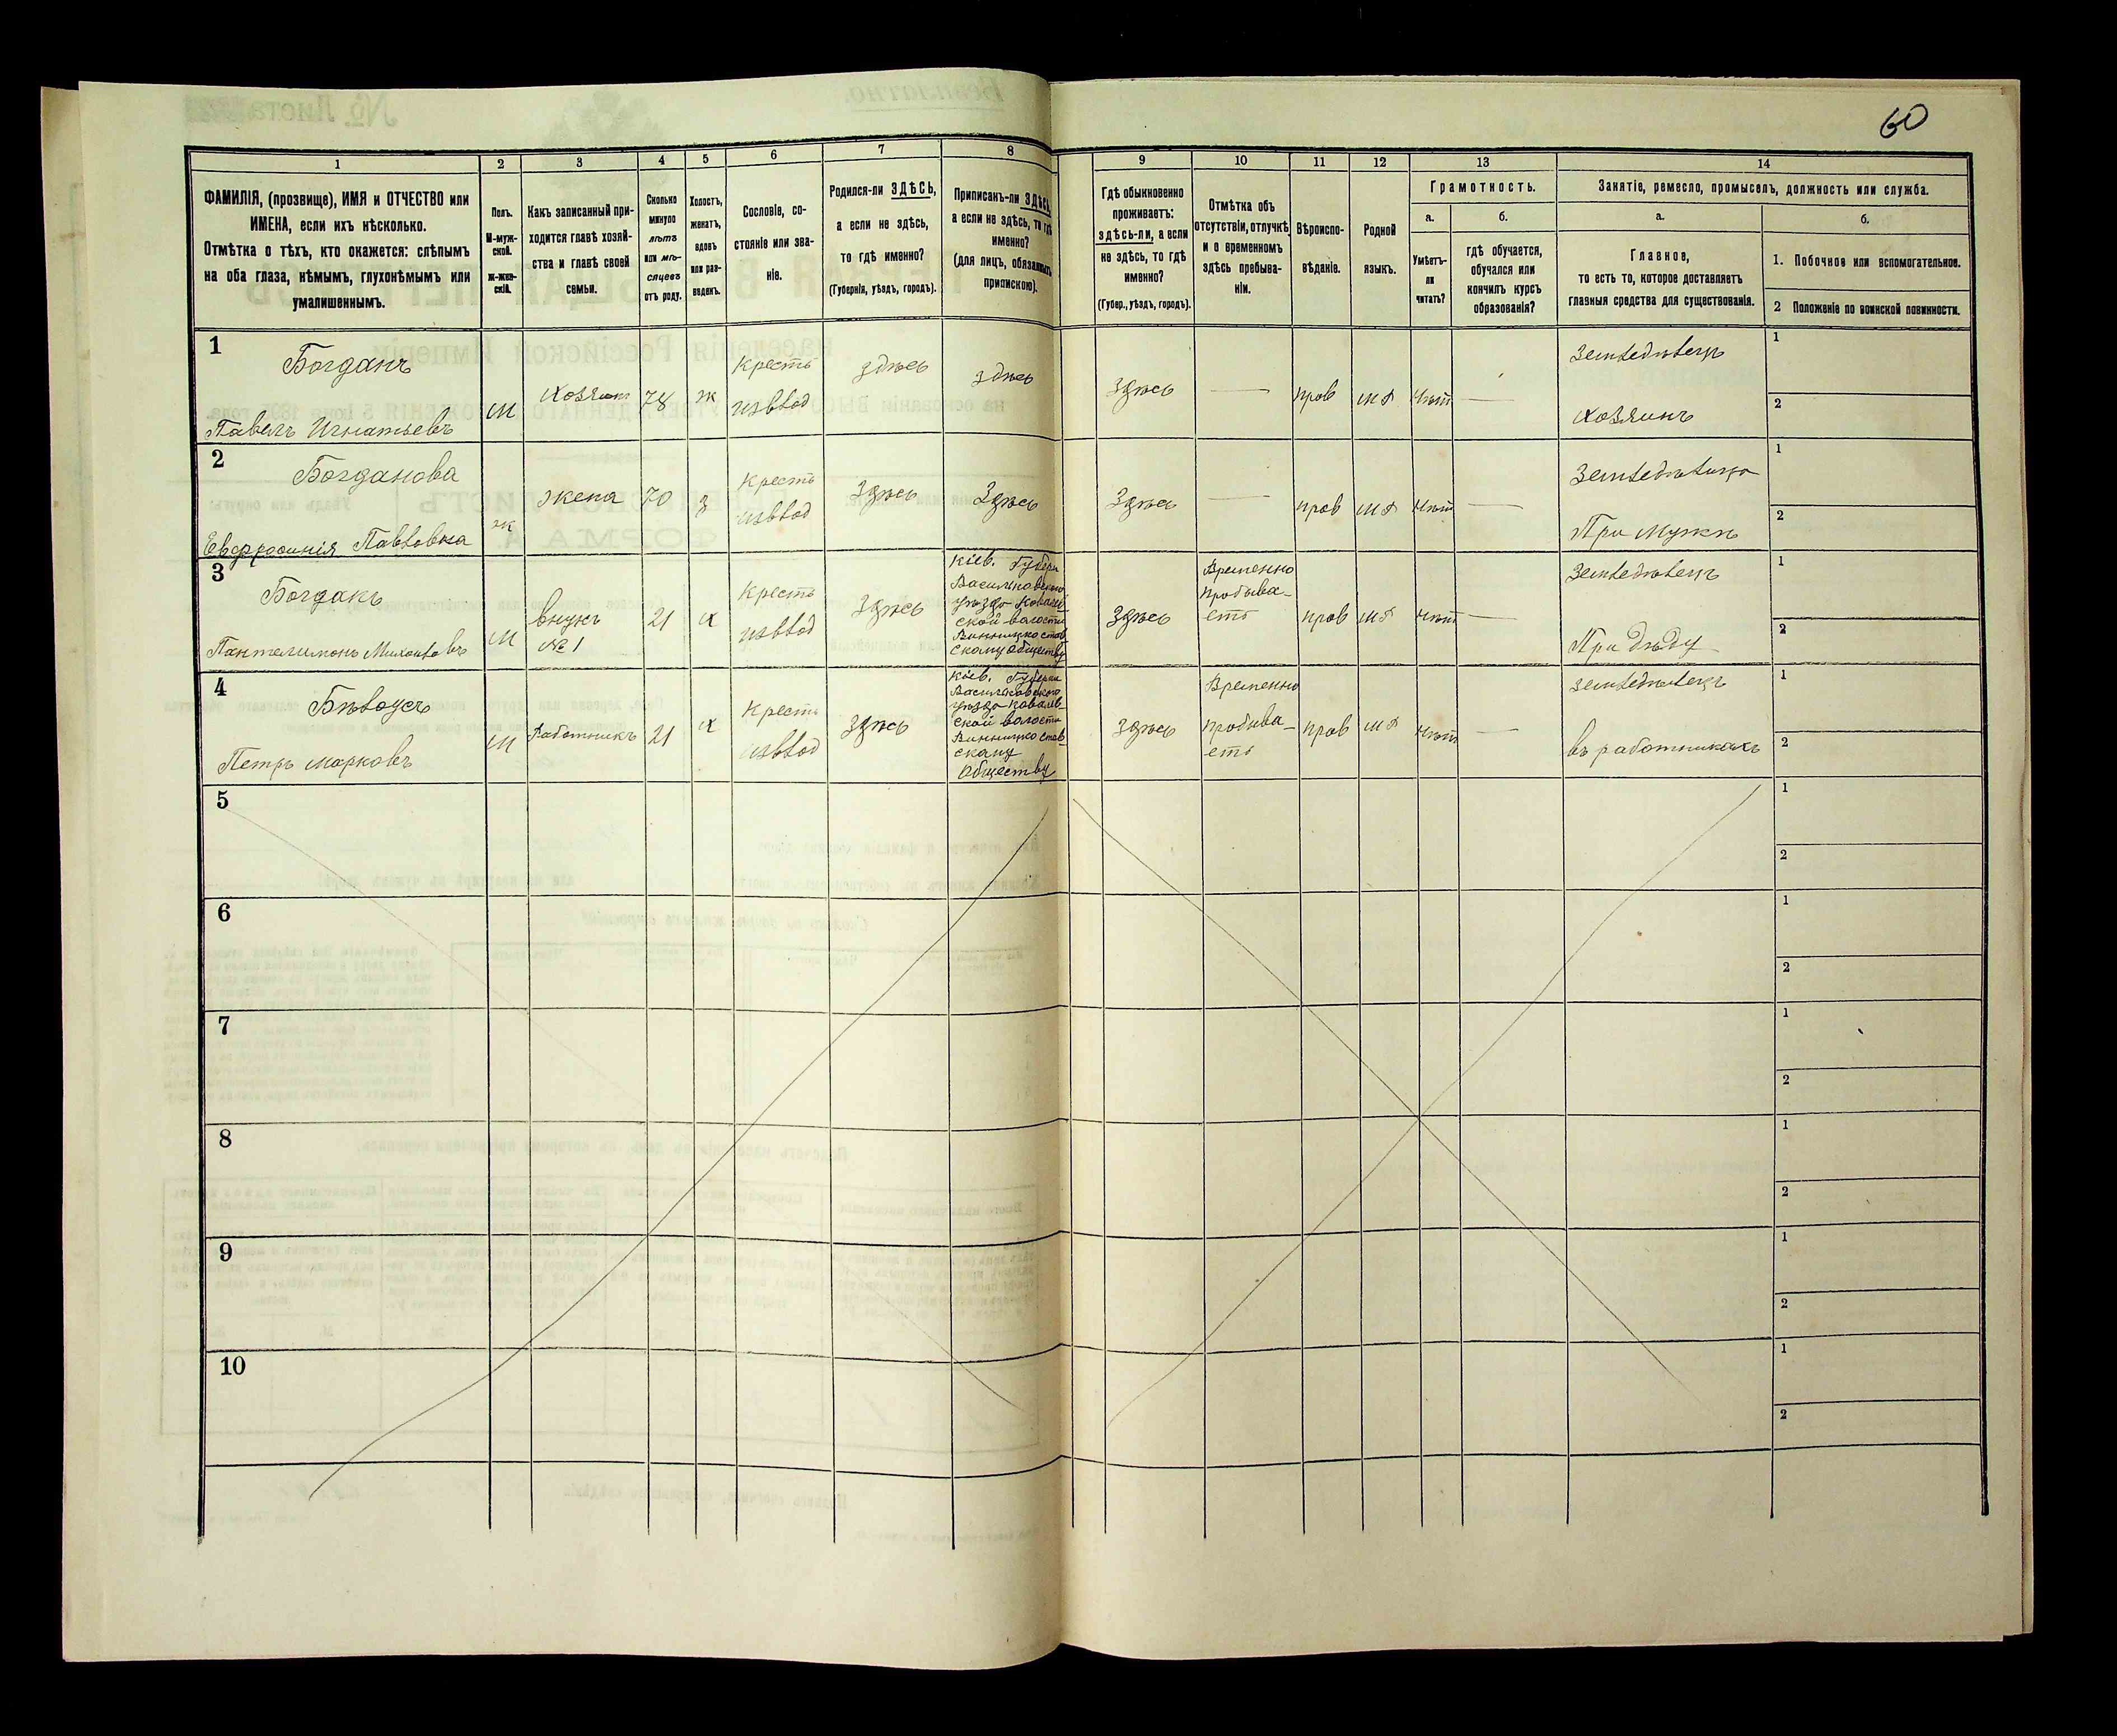 60
1
2
3
4
5
6
7
8
9
10
11
12
13
14
ФАМИЛІЯ, (прозвище), ИМЯ и ОТЧЕСТВО или
ИМЕНА, если ихъ нѣсколько.
Отмѣтка о тѣхъ, кто окажется: слѣпымъ
на оба глаза, нѣмымъ, глухонѣмымъ или
умалишеннымъ.
Полъ.
М-муж-
ской.
Ж-жен-
скій.
Какъ записанный при-
ходится главѣ хозяй-
ства и главѣ своей
семьи.
Сколько
минуло
лѣтъ
или мѣ-
сяцевъ
отъ роду.
Холостъ,
женатъ,
вдовъ
или раз-
веденъ.
Сословіе, со-
стояніе или зва-
ніе.
Родился-ли ЗДѢСЬ,
а если не здѣсь,
то гдѣ именно?
(Губернія, уѣздъ, городъ).
Приписанъ-ли ЗДѢСЬ,
а если не здѣсь, то гдѣ
именно?
(для лицъ, обязанныхъ
припискою).
Гдѣ обыкновенно
проживаетъ:
здѣсь-ли, а если
не здѣсь, то гдѣ
именно?
(Губер., уѣздъ, городъ).
Отмѣтка объ
отсутствіи, отлучкѣ
и о временномъ
здѣсь пребыва-
ніи.
Вѣроиспо-
вѣданіе.
Родной
языкъ.
Грамотность.
а.
б.
Умѣетъ-
ли
читать?
гдѣ обучается,
обучался или
кончилъ курсъ
образованія?
Занятіе, ремесло, промыселъ, должность или служба.
а.
б.
Главное,
то есть то, которое доставляетъ
главныя средства для существованія.
1. Побочное или вспомогательное.
2 Положеніе по воинской повинности.
1
Богданъ
Павелъ Игнатьевъ
М
Хозяинъ
78
ж
Крестъ
изъ влад
здѣсь
здѣсь
здѣсь
—
прав
мр
Нѣтъ
—
Земледѣлецъ
Хозяинъ
1
2
2
Богданова
Евфросинія Павловна
ж
жена
70
з
Крестъ
изъ влад
Здѣсь
Здѣсь
Здѣсь
—
прав
мр
Нѣтъ
—
Земледѣлица
При мужѣ
1
2
3
Богданъ
Пантелимонъ Михаиловъ
М
внукъ
№ 1
21
х
Крестъ
изъ влад
Здѣсь
Кіев. Губерн
Васильковскаго
уѣзда Ковалев-
ской волости
Винницко став-
скому Обществу
Здѣсь
Временно
пробыва-
етъ
прав
мр
Нѣтъ
—
Земледѣлецъ
При дѣду
1
2
4
Бѣлоусъ
Петръ Марковъ
М
Работникъ
21
х
Крестъ
изъ влад
Здѣсь
Кіев. Губерніи
Васильковскаго
уѣзда Ковалев-
ской волости
Винницко став-
скому
Обществу
Здѣсь
Временно
пробыва-
етъ
прав
мр
Нѣтъ
—
Земледѣлецъ
въ работникахъ
1
2
5
1
2
6
1
2
7
1
2
8
1
2
9
1
2
10
1
2